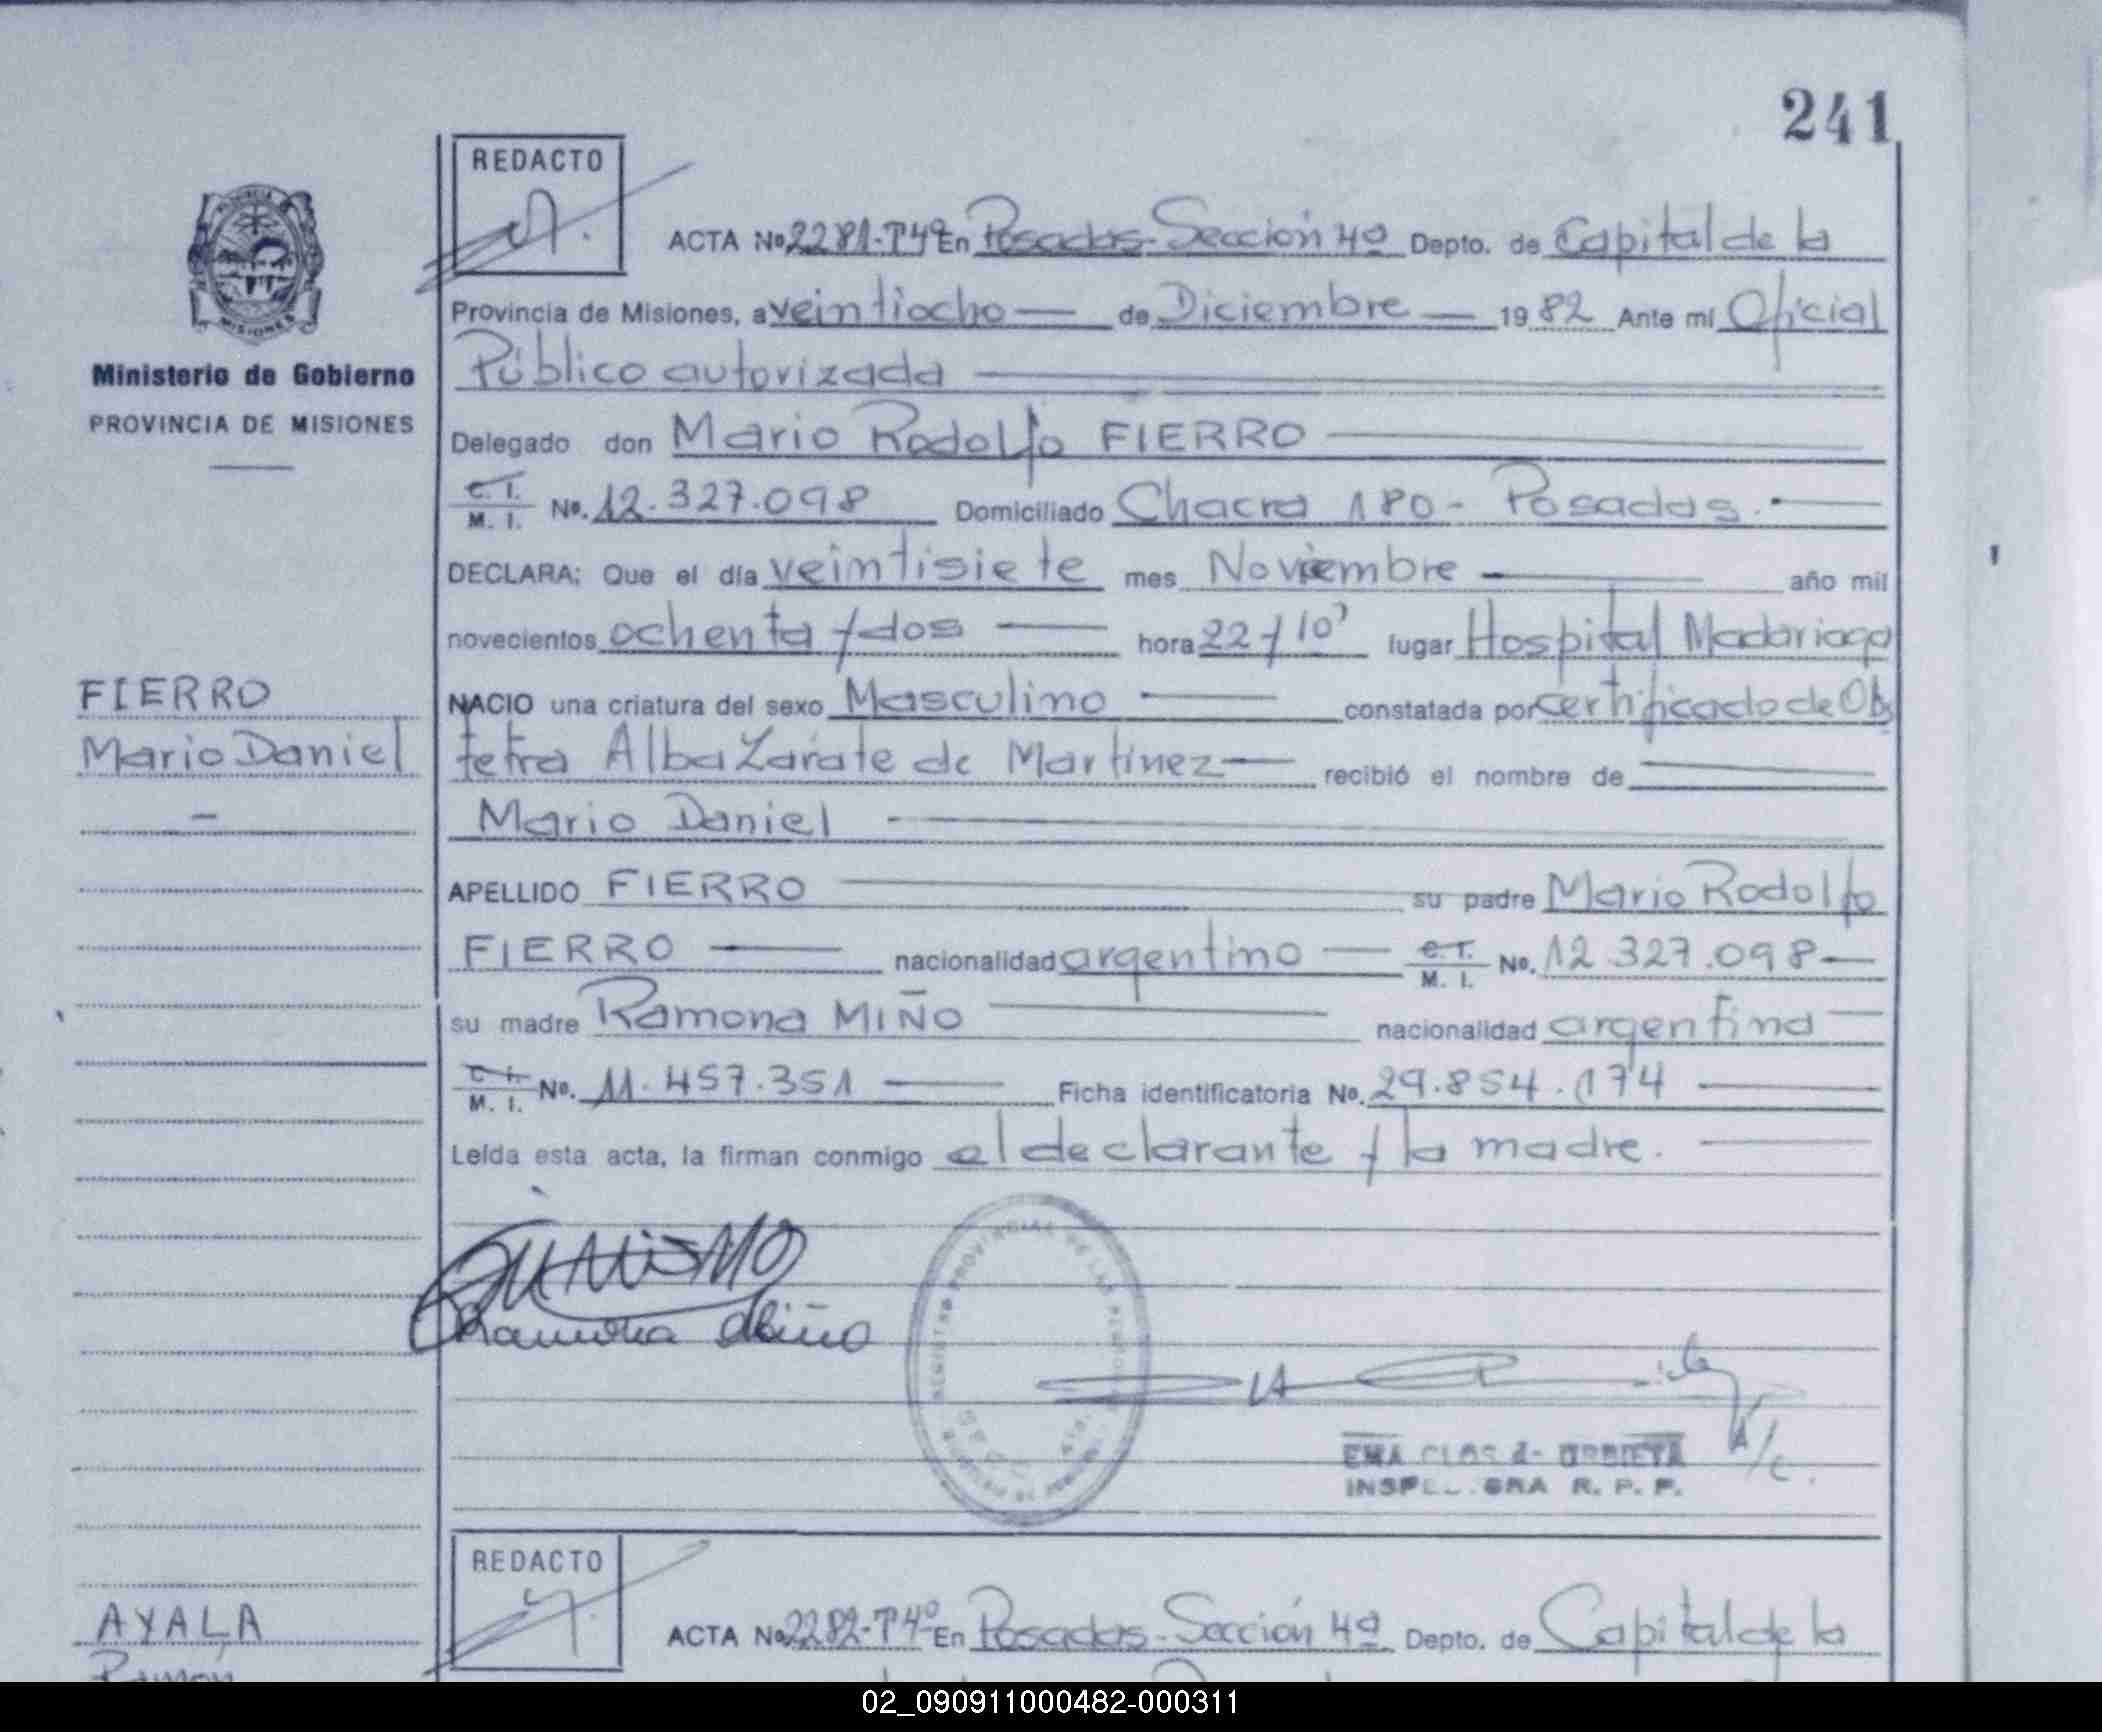 241
REDACTO
ACTA No 2281-Tº4º En Posadas-Sección 4º Depto. de Capital de la
Provincia de Misiones, a veintiocho — de Diciembre — 19 82 Ante mí Oficial
Ministerio de Gobierno
PROVINCIA DE MISIONES
Público autorizada
Delegado don Mario Rodolfo FIERRO
C. I.
M. I. No. 12.327.098 Domiciliado Chacra 180 - Posadas.
DECLARA: Que el día veintisiete mes Noviembre — año mil
novecientos ochenta y dos — hora 22 y 10' lugar Hospital Madariaga
FIERRO
Mario Daniel
NACIO una criatura del sexo Masculino — constatada por certificado de Obs
tetra Alba Zarate de Martinez — recibió el nombre de
Mario Daniel
APELLIDO FIERRO — su padre Mario Rodolfo
FIERRO — nacionalidad argentino — C. I.
M. I. No. 12.327.098 —
su madre Ramona MIÑO — nacionalidad argentina —
C. I.
M. I. No. 11.457.351 — Ficha identificatoria No. 29.854.174 —
Leída esta acta, la firman conmigo el declarante y la madre.
Ramona Miño
REGISTRO PROVINCIAL DE LAS PERSONAS
A/c.
INSPECTORA R. P. P.
REDACTO
AYALA
Ramón
ACTA No 2282-Tº4º En Posadas-Sección 4º Depto. de Capital de la
02_090911000482-000311